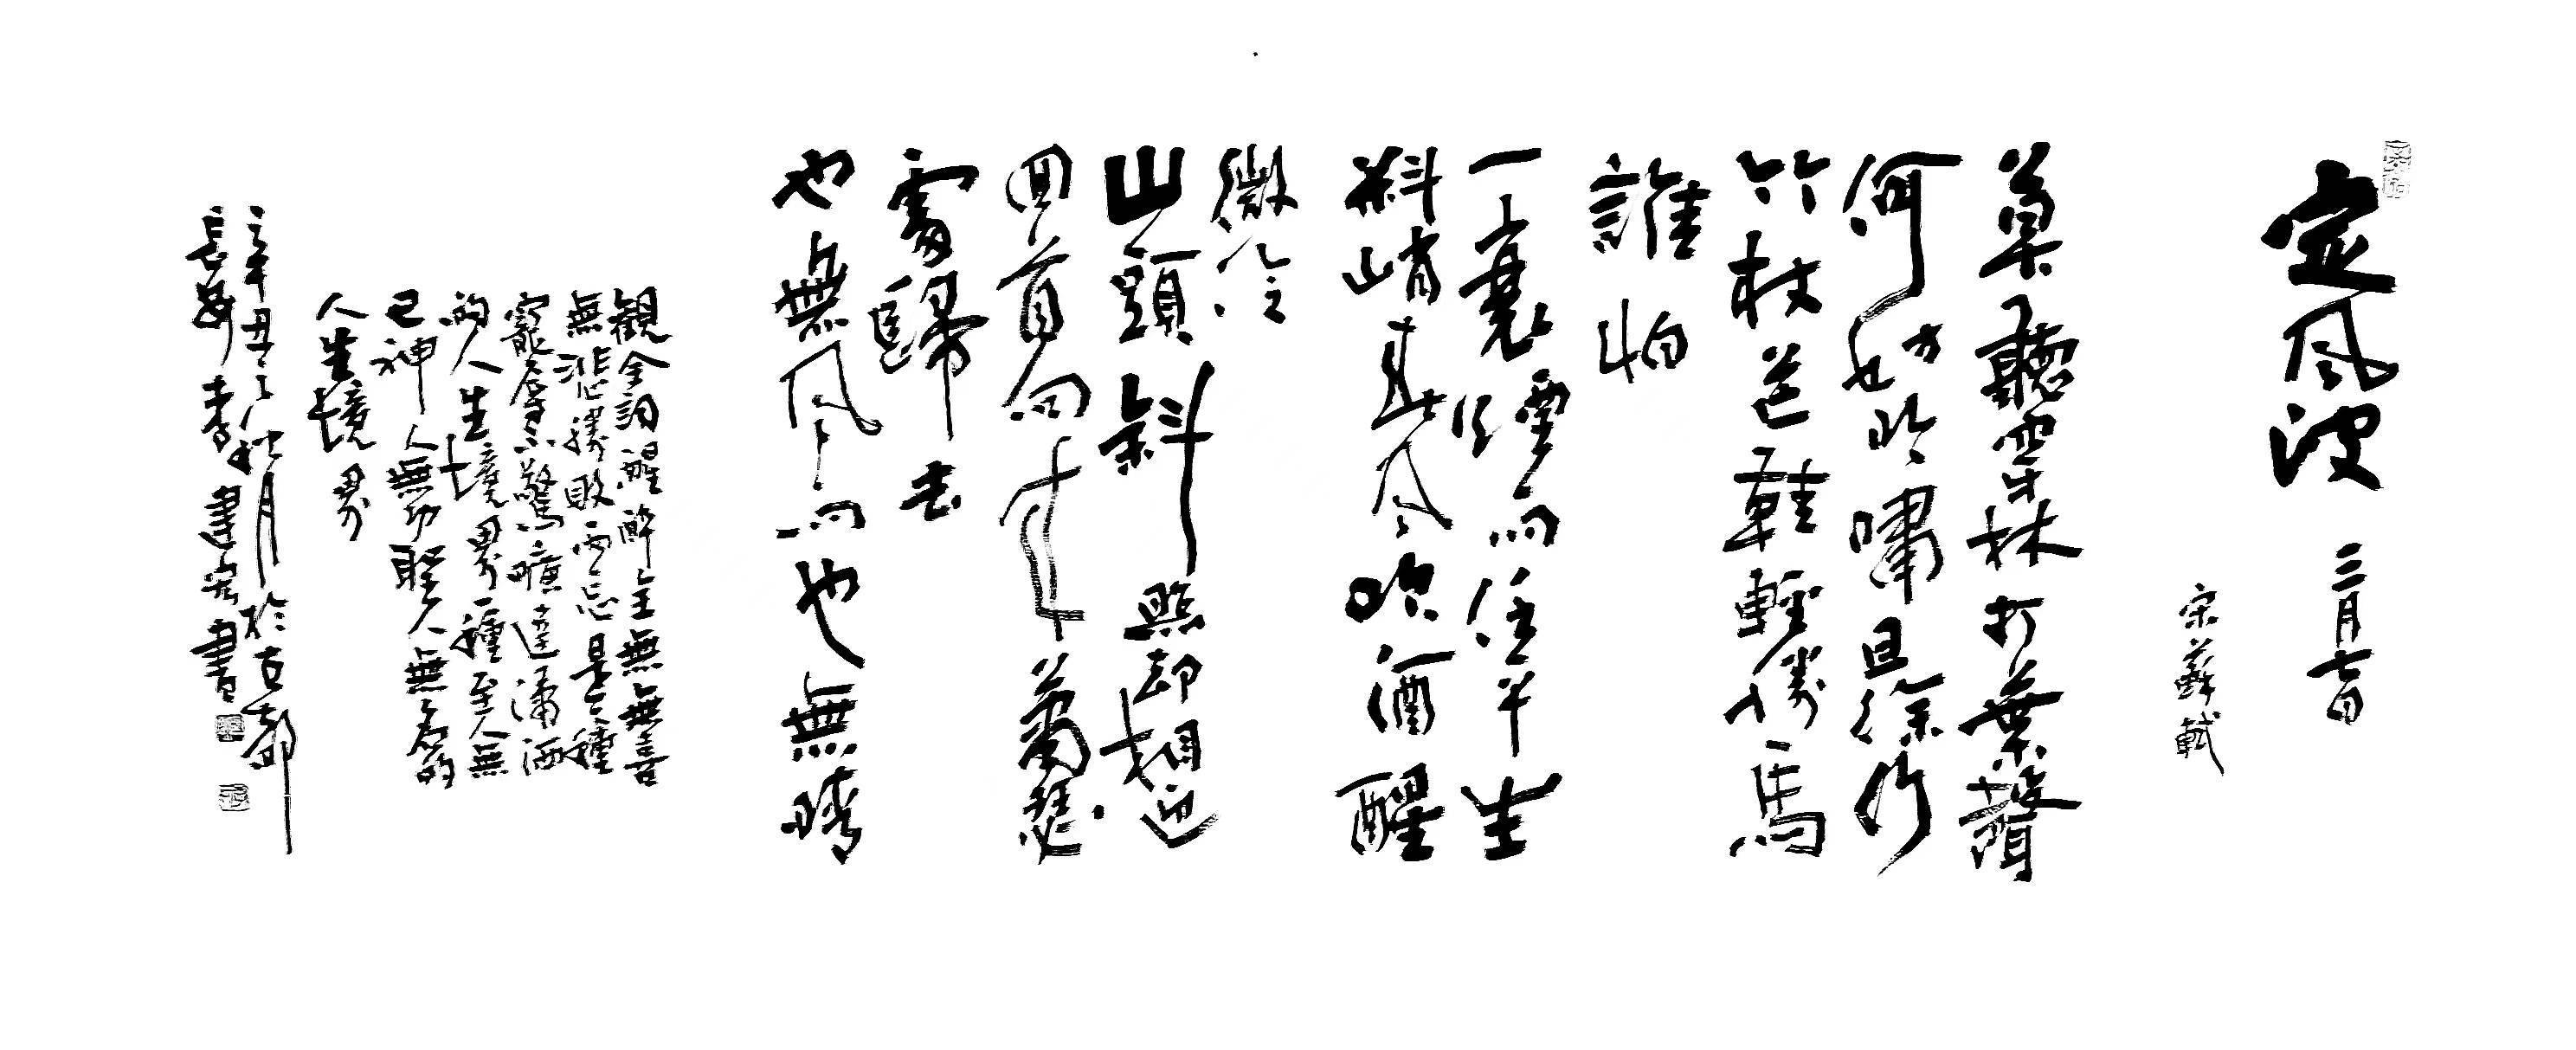 定風波 三月七日
宋 蘇軾
莫聽穿林打葉聲
何妨吟嘯且徐行
竹杖芒鞋輕勝馬
誰怕
一蓑煙雨任平生
料峭春風吹酒醒
微冷
山頭斜照却相迎
回首向來蕭瑟
處歸去
也無風雨也無晴
觀全詞醒醉全無無喜
無悲勝敗兩忘是一種
寵辱不驚曠達瀟洒
的人生境界一種至人無
己神人無功聖人無名的
人生境界
辛丑之秋月於古都
長安李建書